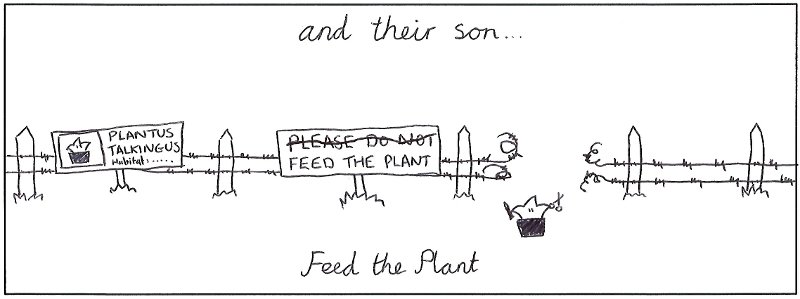 and their son...
PLANTUS
TALKINGUS
Habitat:......
PLEASE DO NOT
FEED THE PLANT
Feed the Plant